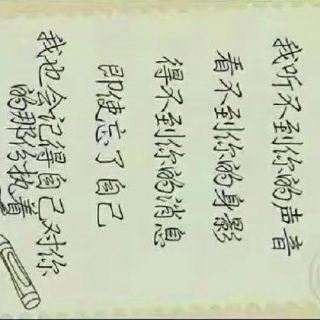 我听不到你的声音
看不到你的身影
得不到你的消息
即使忘了自己
我也会记得自己对你
的那份执着